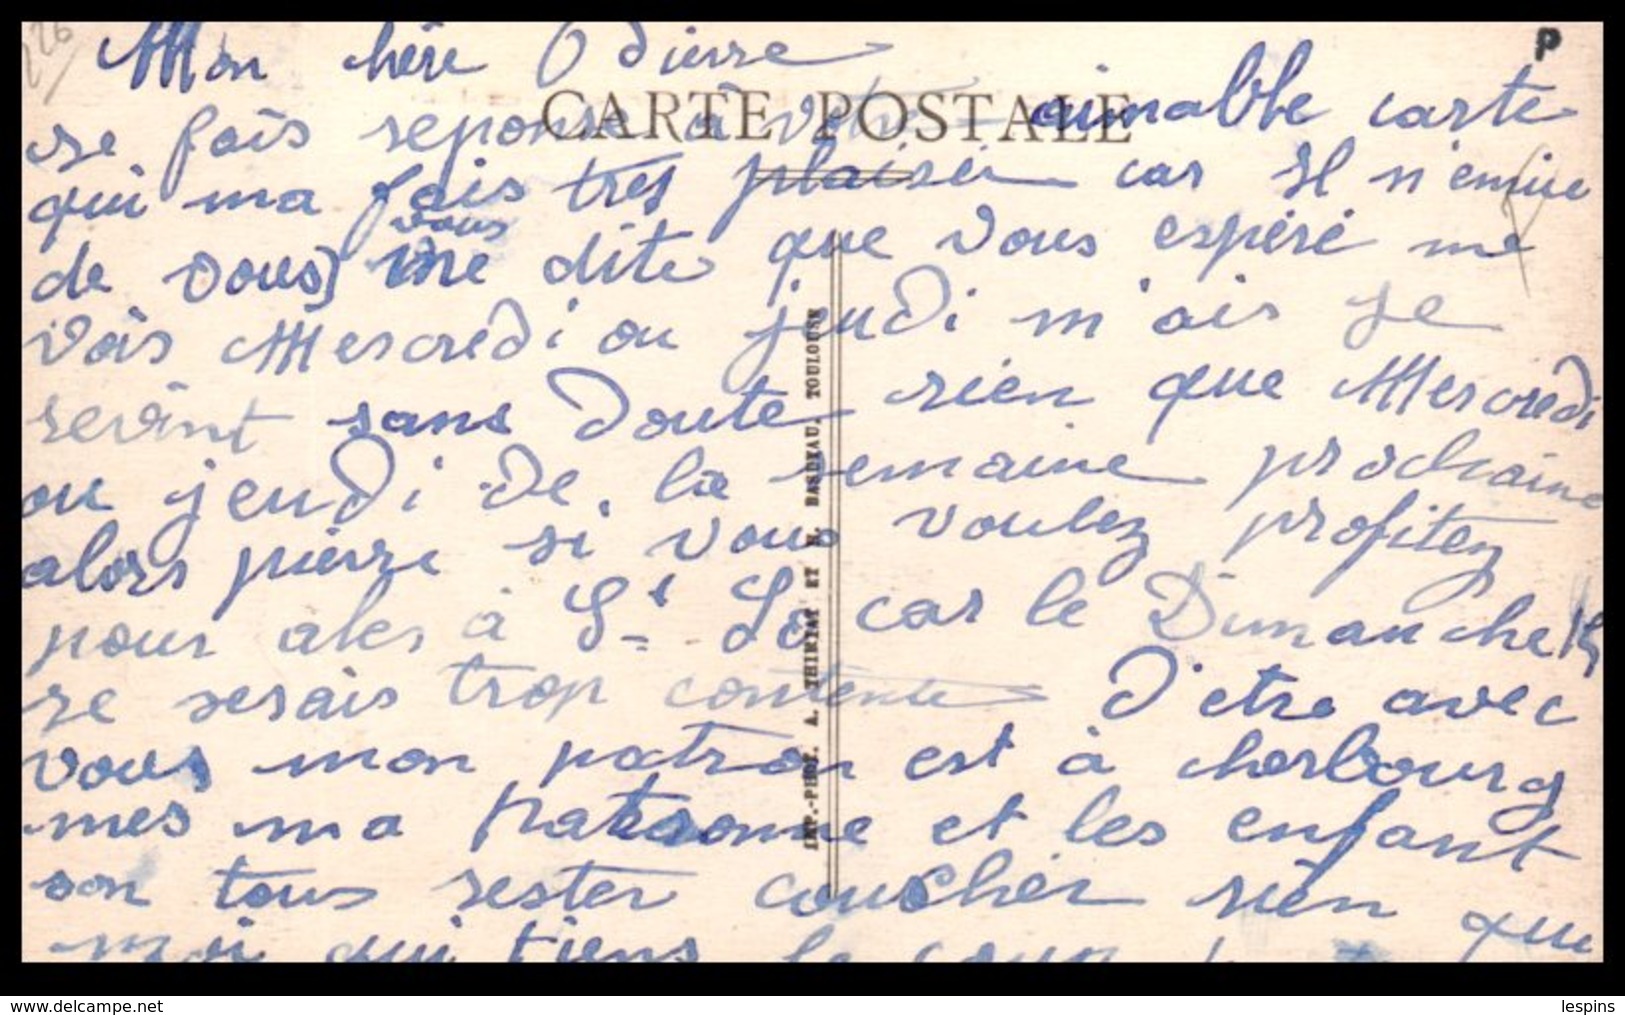 Mon chére Odierre
P
CARTE POSTALE
ze fais reponse à votre aimable carte
qui ma fais tres plaisir car Il n'enniue
de vous] vous me dite que vous espéré me
vois Mercredi ou jeudi m'ais Je
serint sans Doute rien que Mercredi
ou jeudi De la semaine prochaine
alors pierre si vous voulez profitez
pour aler à St Lo car le Dimanche 15
ze serais trop contente D'etre avec
vous mon patron est à cherbourg
mes ma patronne et les enfant
son tous rester coucher rien que
moi qui tiens le coup
IMP.-PHOT. A. THIRIAT ET E. BASDEAU. TOULOUSE
www.delcampe.net
lespins